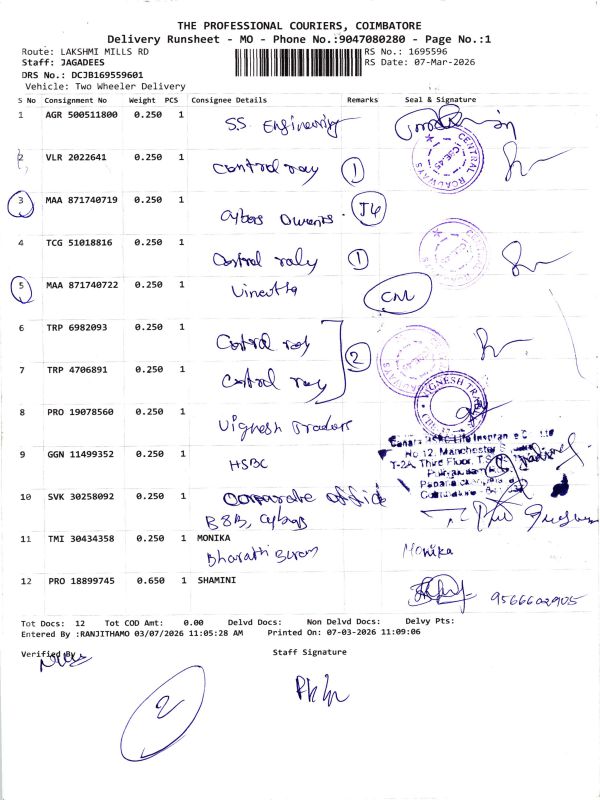 THE PROFESSIONAL COURIERS, COIMBATORE
Delivery Runsheet - MO - Phone No.:9047080280 - Page No.:1
Route: LAKSHMI MILLS RD RS No.: 1695596
Staff: JAGADEES RS Date: 07-Mar-2026
DRS No.: DCJB169559601
Vehicle: Two Wheeler Delivery
S No Consignment No Weight PCS Consignee Details Remarks Seal & Signature
1 AGR 500511800 0.250 1 S.S. Engineering
2 VLR 2022641 0.250 1 Control ray 1
3 MAA 871740719 0.250 1 Cybers J4
4 TCG 51018816 0.250 1 Control raly 1
5 MAA 871740722 0.250 1 Vineetha CM
6 TRP 6982093 0.250 1 Control ray
2
7 TRP 4706891 0.250 1 Control ray
8 PRO 19078560 0.250 1 Vignesh Traders VIGNESH
9 GGN 11499352 0.250 1 HSBC
No 12, Manchester
T-2A, Third Floor,
10 SVK 30258092 0.250 1 corporate office
BSB, Cybers
11 TMI 30434358 0.250 1 MONIKA Monika
Bharathi
12 PRO 18899745 0.650 1 SHAMINI
Tot Docs: 12 Tot COD Amt: 0.00 Delvd Docs: Non Delvd Docs: Delvy Pts:
Entered By :RANJITHAMO 03/07/2026 11:05:28 AM Printed On: 07-03-2026 11:09:06
Verified By Staff Signature
2